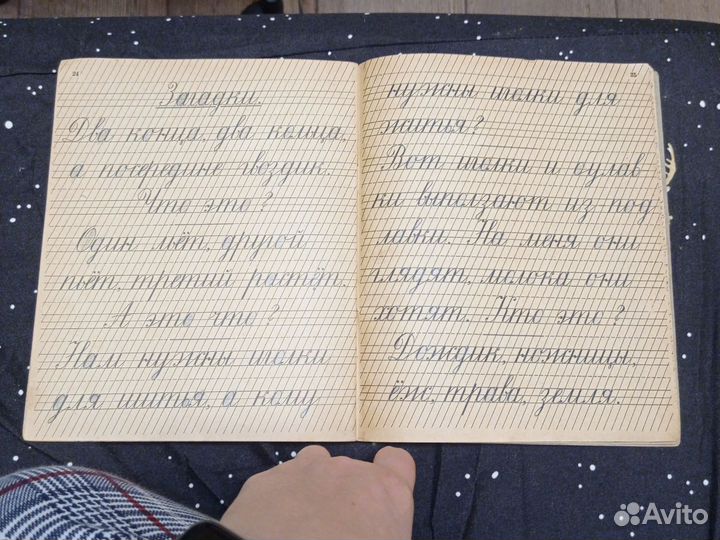 24
Загадки.
Два конца, два кольца,
а посередине гвоздик.
Что это?
Один льёт, другой
пьёт, третий растёт.
А это что?
Нам нужны иголки
для шитья, а кому
25
нужны иголки для
житья?
Вот иголки и булав
ки выползают из под
лавки. На меня они
глядят, молока они
хотят. Кто это?
Дождик, ножницы,
ёж, трава, земля.
Avito